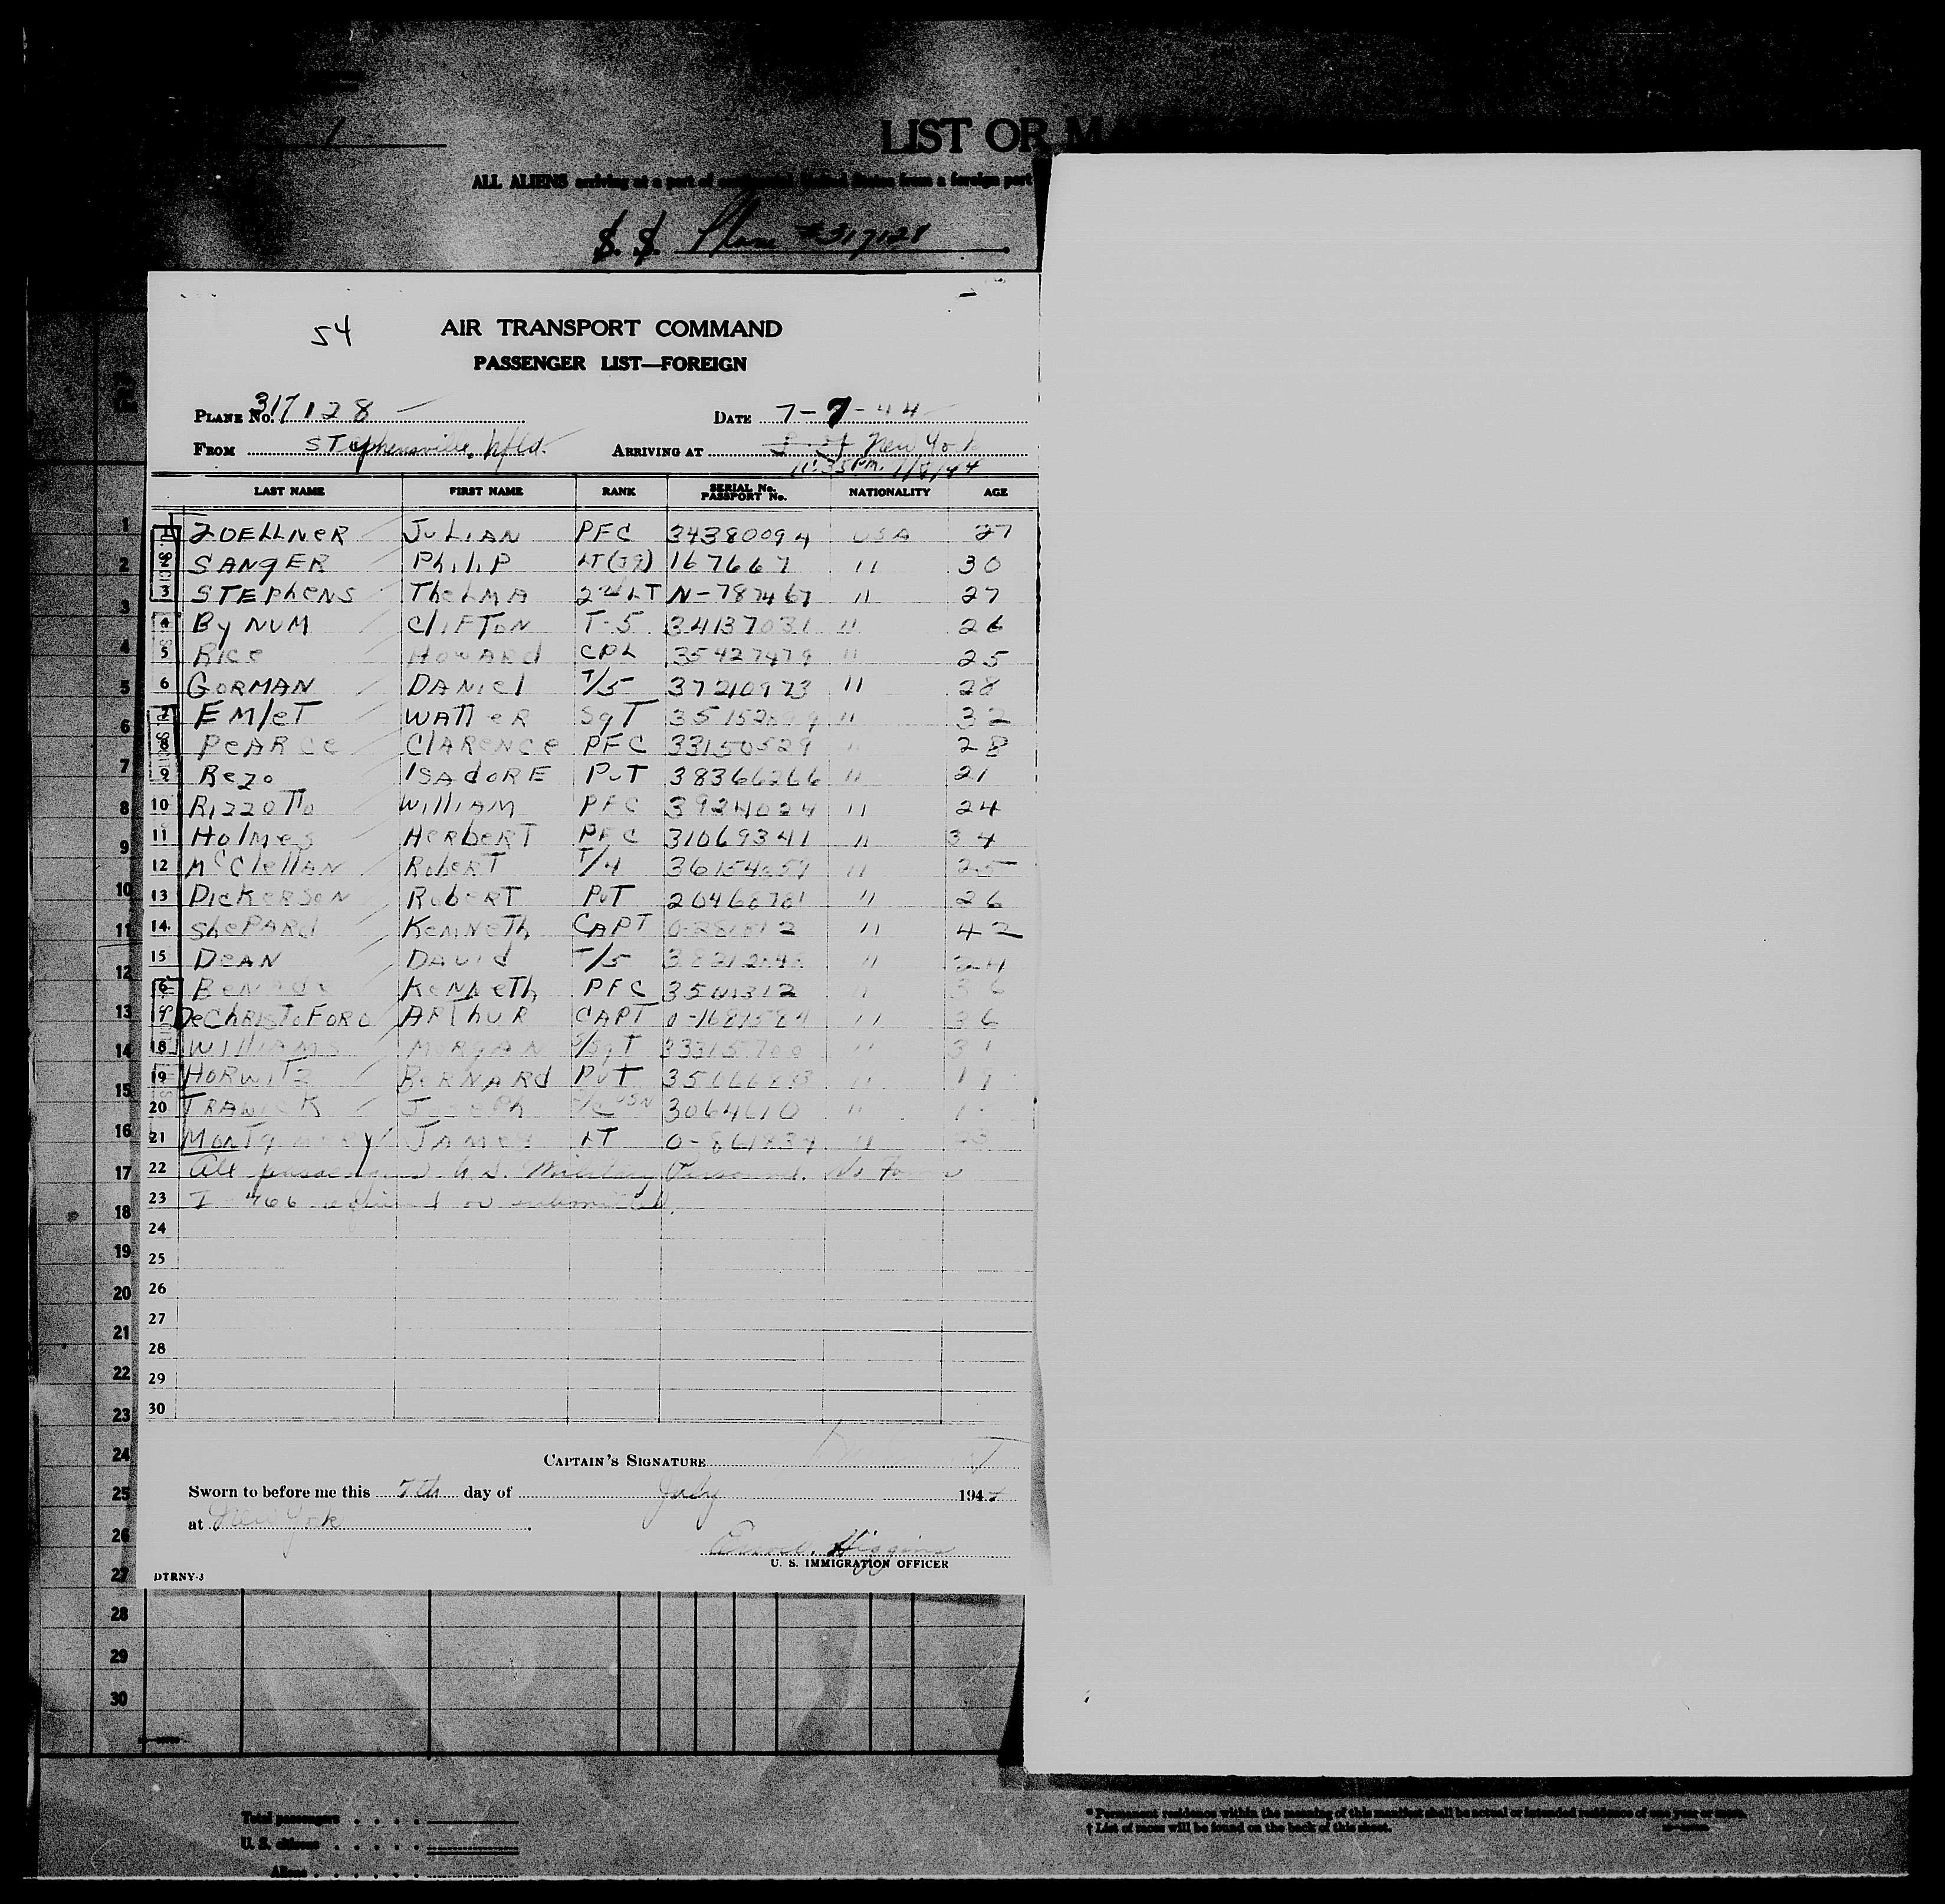 LIST OR MA
ALL ALIENS arriving at a port of continental United States from a foreign port
S. S. Plane #317128
54
AIR TRANSPORT COMMAND
PASSENGER LIST—FOREIGN
PLANE No. 317128 DATE 7-7-44
FROM STephensville, Nfld. ARRIVING AT New York
10:35 PM. 7/7/44
LAST NAME FIRST NAME RANK SERIAL No. PASSPORT No. NATIONALITY AGE
1 ZOELLNER JULIAN PFC 34380094 USA 27
2 SANGER Philip LT(JG) 167667 " 30
3 STEPhENS ThelMA 2nd LT N-787467 " 27
4 ByNUM CliFTON T-5 34137031 " 26
5 Rice HOWARd CPL 35427479 " 25
6 GORMAN DANiel T/5 37210973 " 28
7 EMleT WAlTeR SgT " 32
8 PeARce ClARENce PFC 33150529 " 28
9 Rezo ISAdORE PvT 38366266 " 21
10 Rizzotto William PFC 3924024 " 24
11 Holmes HerberT PFC 31069341 " 34
12 McClellAN RoberT T/4 " 25
13 DickERSON RobeRT PvT 20468781 " 26
14 ShePARd KeNNeTh CAPT " 42
15 DeAN DAVid T/5 " 24
16 KeNNeTh PFC 3501312 " 36
17 DeChRisToFORO ARThuR CAPT 0-1681584 " 36
18 WilliAMS MORgAN S/SgT 33315700 " 31
19 HORWiTz BeRNARd PvT 35066883 " 19
20 TRAWicK Joseph USN 3064610 "
21 MonTgomeRy JAMes LT 0-861834 " 23
22 All passengers U.S. Military Personnel. No Form
23 I-466 required or submitted.
24
25
26
27
28
29
30
CAPTAIN'S SIGNATURE
Sworn to before me this 7th day of July 1944
at New York
Higgins
U. S. IMMIGRATION OFFICER
DTRNY-3
1
2
3
4
5
6
7
8
9
10
11
12
13
14
15
16
17
18
19
20
21
22
23
24
25
26
27
28
29
30
Total passengers
U. S. citizens
Aliens
* Permanent residence within the meaning of this manifest shall be actual or intended residence of one year or more.
† List of races will be found on the back of this sheet.